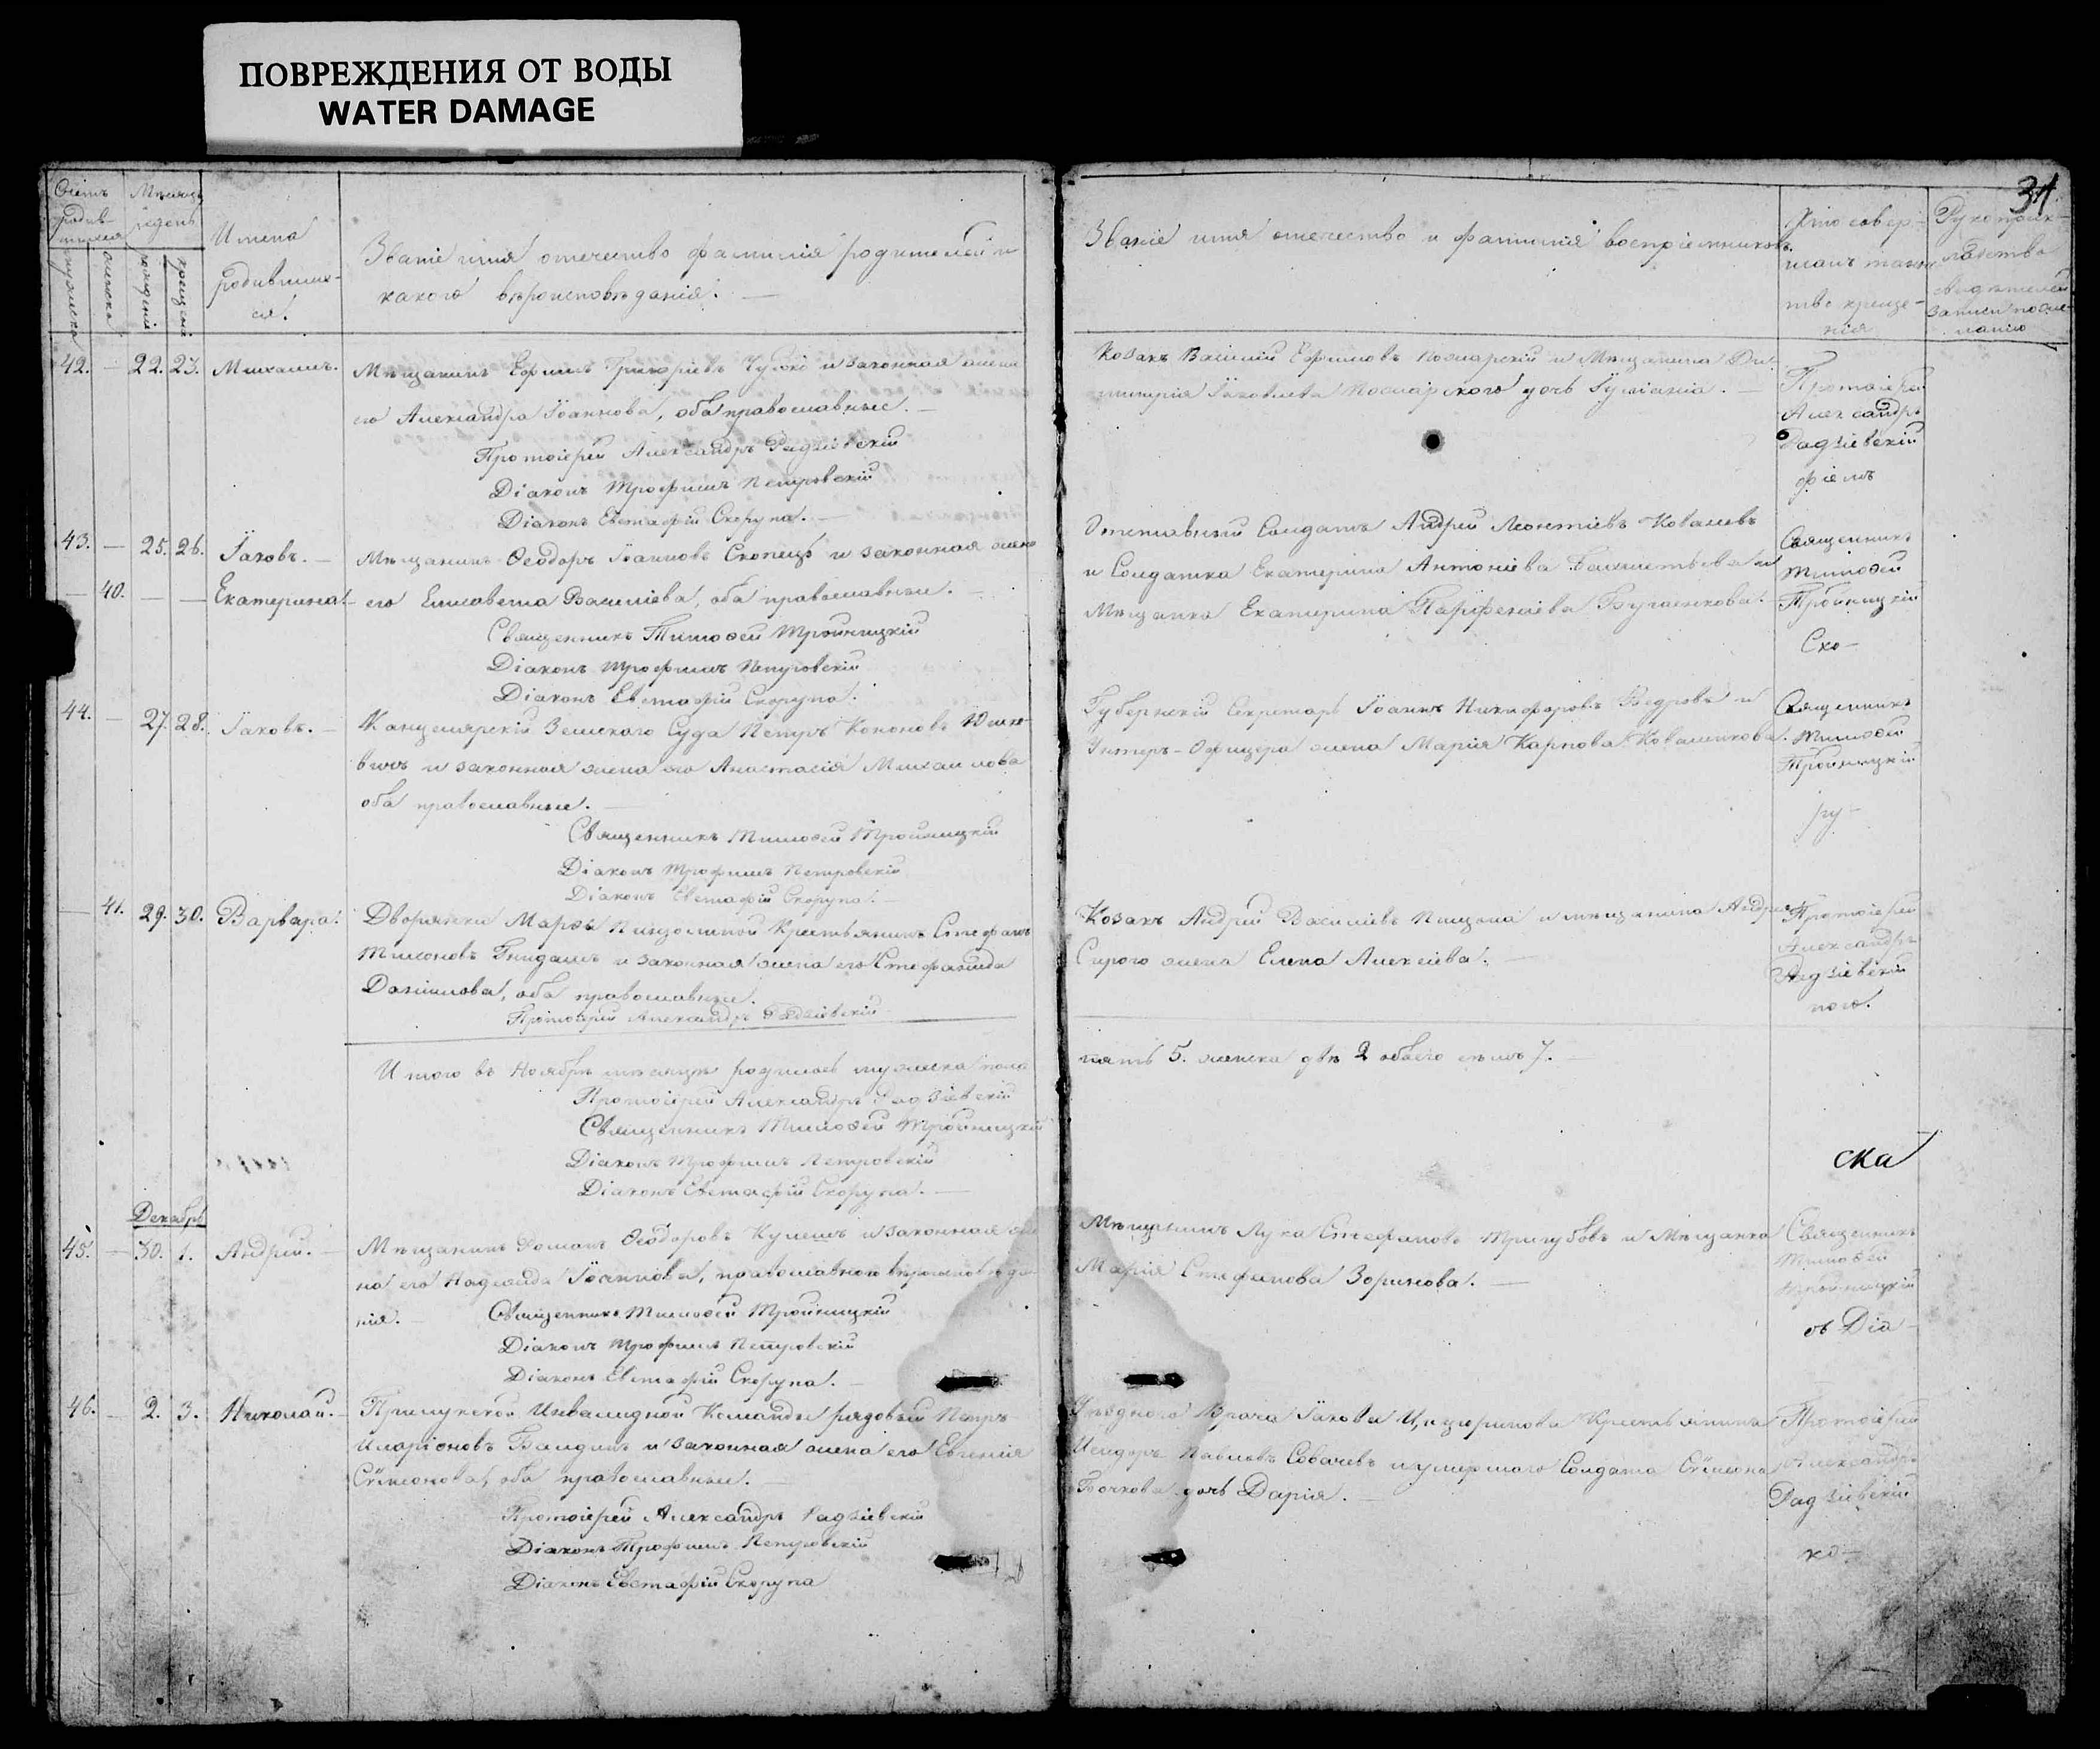 ПОВРЕЖДЕНИЯ ОТ ВОДЫ
WATER DAMAGE
31.
Счетъ родив-шихся
Мѣсяцъ и день
мужеска
женска
рожденія
крещенія
Имена
родивших-
ся.
Званіе имя отечество фамилія родителей и
какого вѣроисповѣданія.
Званіе имя отечество и фамилія воспріемниковъ.
Кто совер-
шалъ таин-
тво креще-
нія
Рукоприк-
ладство
свидѣтелей
записи по же-
ланію
42. — 22. 23. Михаилъ.
Мѣщанинъ Ефимъ Григоріевъ и законная жена
его Александра Іоаннова, оба православные. —
Протоіерей Александръ Радзіевскій
Діаконъ Трофимъ Петровскій
Діаконъ Евстафій Скорупа. —
Козакъ Василій Ефимовъ и Мѣщанина Ди-
митрія Іаковлева дочь Іуліанія. —
Протоіерей
Александръ
Радзіевскій
43. — 25. 26. Іаковъ. —
Мѣщанинъ Ѳеодоръ Іоанновъ Скопецъ и законная жена
— 40. — — Екатерина.
его Елисавета Василіева, оба православные. —
Священникъ Тимоѳей Тройницкій
Діаконъ Трофимъ Петровскій
Діаконъ Евстафій Скорупа.
Отставный Солдатъ Андрей Леонтіевъ Ковалевъ
и Солдатка Екатерина Антоніева и
Мѣщанка Екатерина Парфеніева
Священникъ
Тимоѳей
Тройницкій
Ско-
44. — 27. 28. Іаковъ. —
Канцелярскій Земскаго Суда Петръ Кононовъ Юшке-
вичъ и законная жена его Анастасія Михаилова
оба православные. —
Священникъ Тимоѳей Тройницкій
Діаконъ Трофимъ Петровскій
Діаконъ Евстафій Скорупа. —
Губернскій Секретарь Іоаннъ Никифоровъ Ведровъ и
Унтеръ-Офицера жена Марія Карпова Коваленкова.
Священникъ
Тимоѳей
Тройницкій
ру-
— 41. 29. 30. Варвара.
Дворянки Марѳы Крестьянинъ Стефанъ
Тимоновъ и законная жена его Стефанида
Даніилова, оба православные.
Протоіерей Александръ Радзіевскій
Козакъ Андрей Василіевъ и мѣщанина Андрея
Сѣрого жена Елена Алексіева. —
Протоіерей
Александръ
Радзіевскій
Итого въ Ноябрѣ мѣсяцѣ родилось мужеска пола
пять 5. женска двѣ 2 обоего семь 7. —
Протоіерей Александръ Радзіевскій
Священникъ Тимоѳей Тройницкій
Діаконъ Трофимъ Петровскій
Діаконъ Евстафій Скорупа. —
ска
Декабрь
45. — 30. 1. Андрей. —
Мѣщанинъ Романъ Ѳеодоровъ Кулешъ и законная же-
на его Надежда Іоаннова, православного вѣроисповѣда-
нія. —
Священникъ Тимоѳей Тройницкій
Діаконъ Трофимъ Петровскій
Діаконъ Евстафій Скорупа. —
Мѣщанинъ Лука Стефановъ Тригубовъ и Мѣщанка
Марія Стефанова Зоринова. —
Священникъ
Тимоѳей
Тройницкій
въ Діа-
46. — 2. 3. Николай. —
Прилукской Инвалидной Команды рядовый Петръ
Иларіоновъ и законная жена его Евгенія
Сѵмеонова, оба православные. —
Протоіерей Александръ Радзіевскій
Діаконъ Трофимъ Петровскій
Діаконъ Евстафій Скорупа
Уѣзднаго Врача Іакова Крестьянинъ
Исидоръ Павловъ и умершаго Солдата Сѵмеона
Бочкова дочь Дарія. —
Протоіерей
Александръ
Радзіевскій
ко-